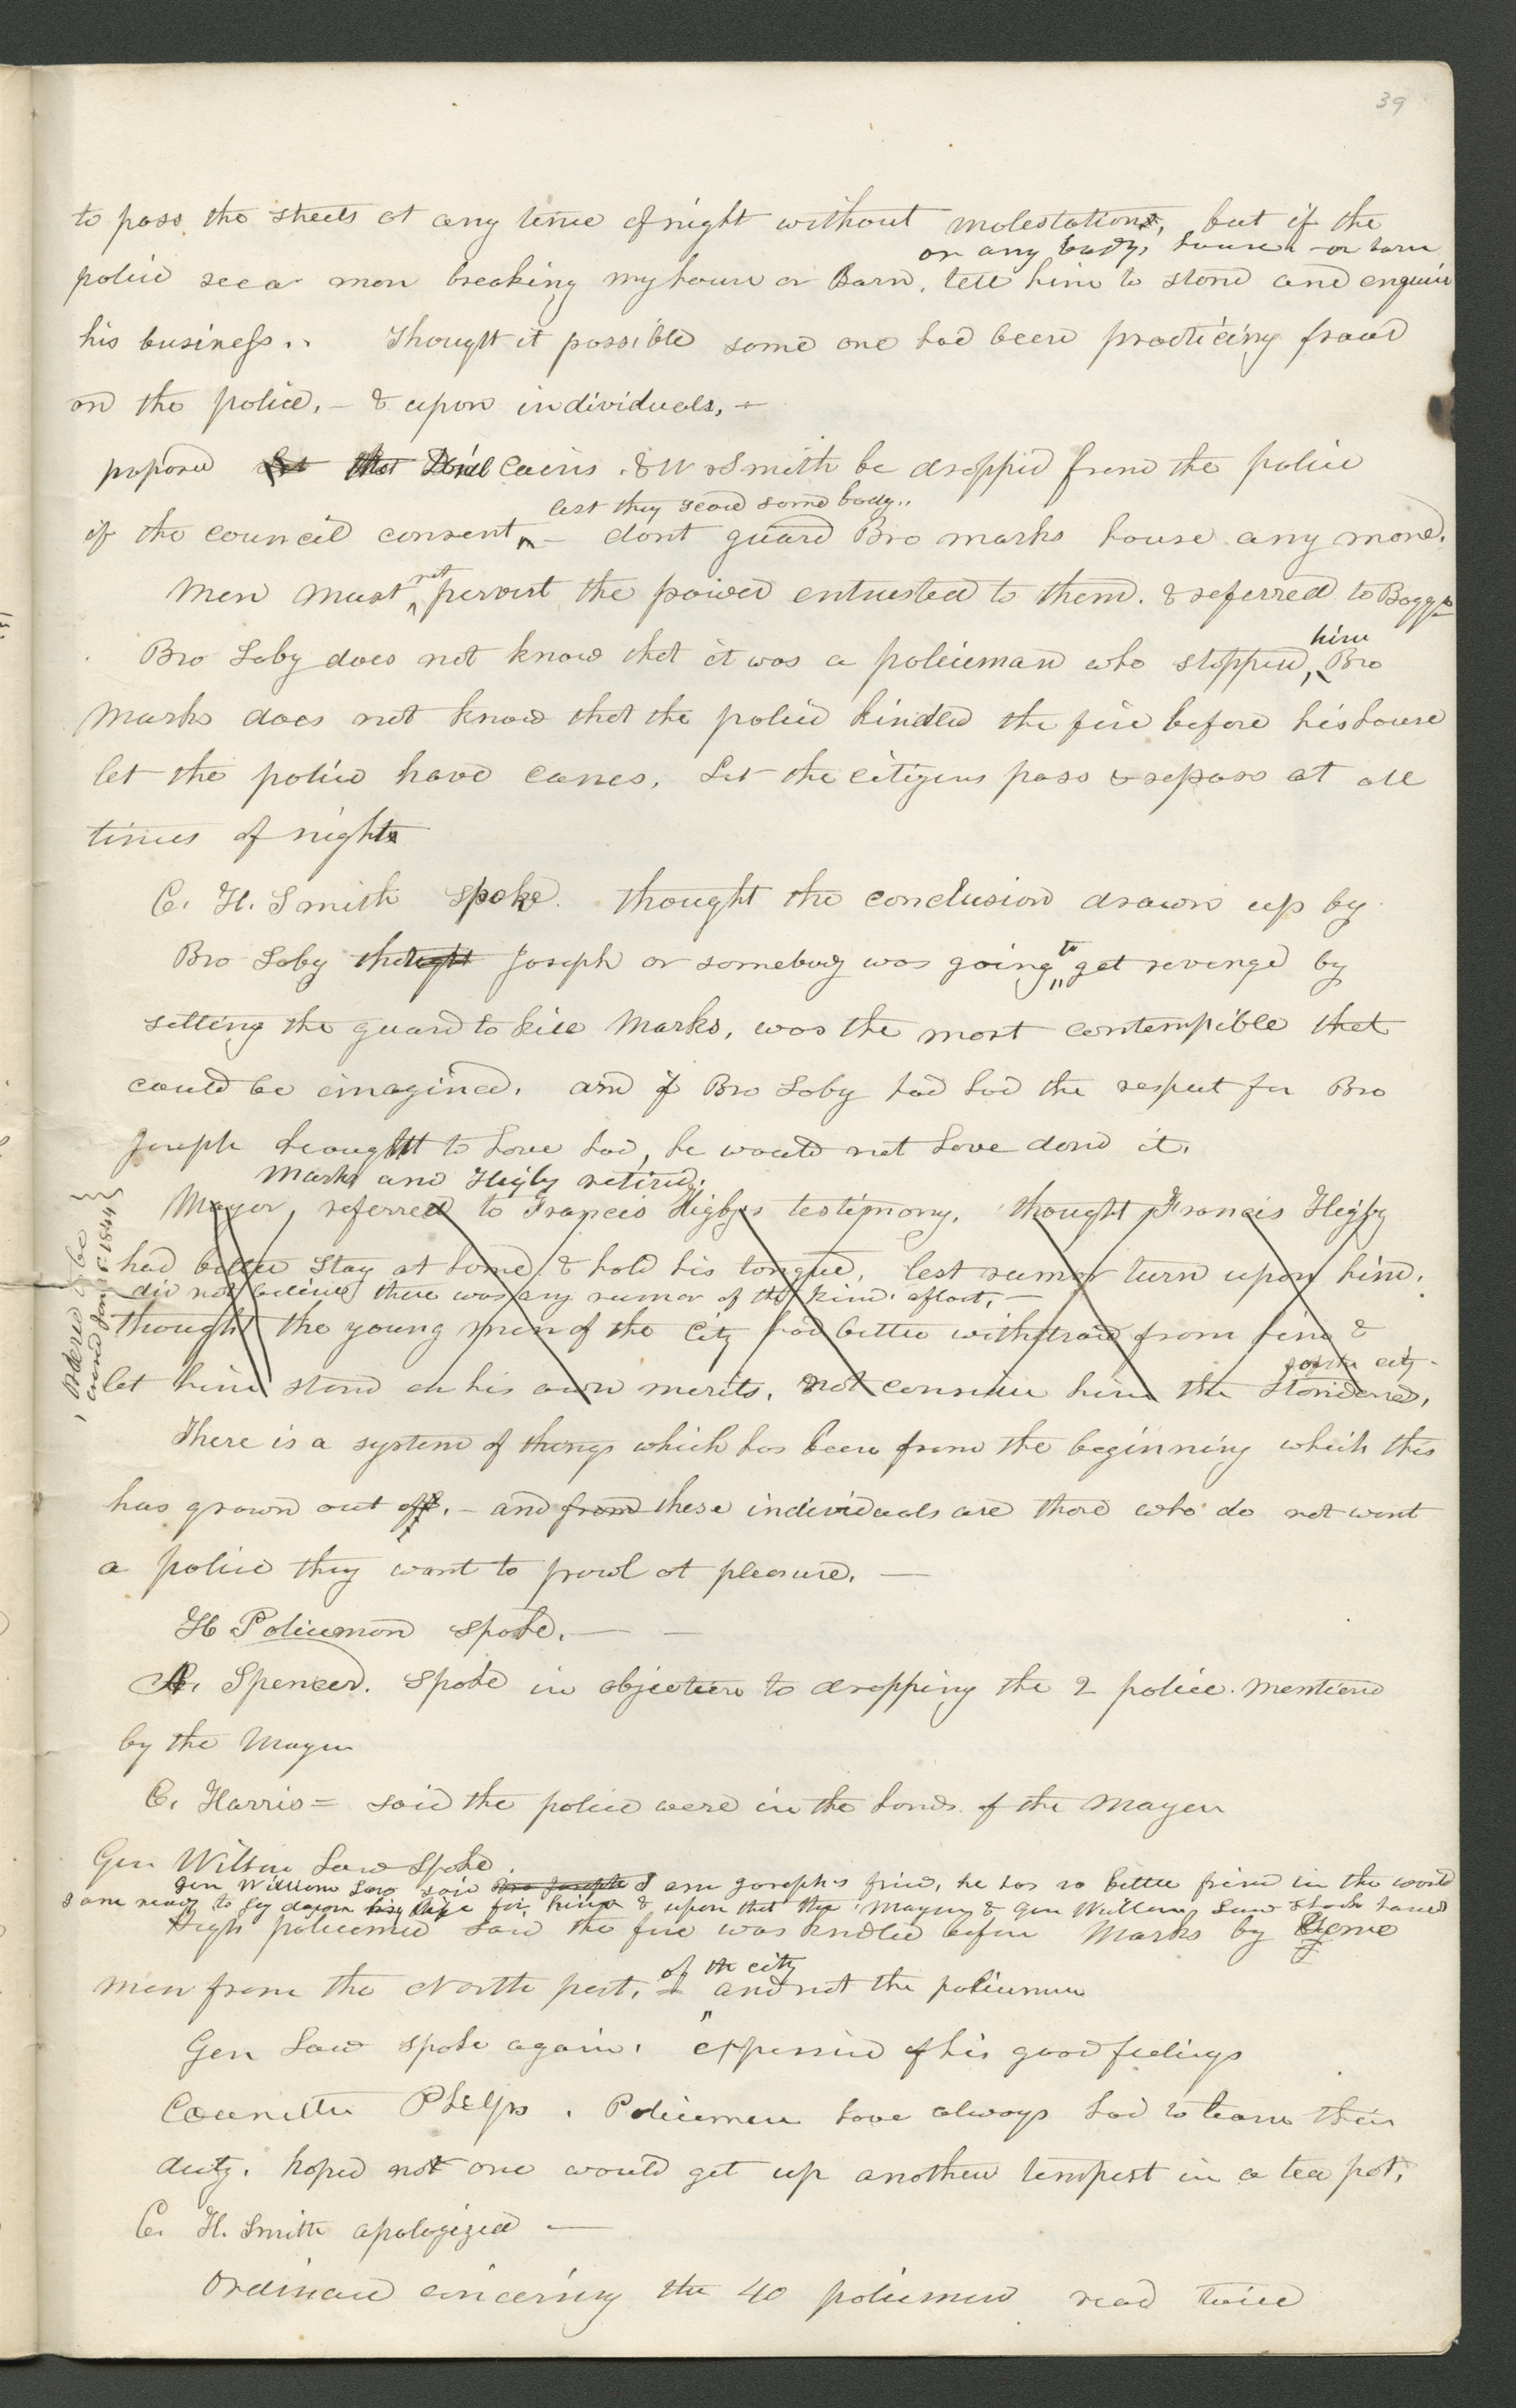 39
to pass the streets at any time of night without molestation, but if the
or any bodys house or barn
police see a man breaking my house or Barn, tell him to stand and enquire
his business.. Thought it possible some one had been practicing fraud
on the police, — & upon individuals, —
proposed that Danl Cairns & W Smith be dropped from the police
lest they scard some body..
if the council consent, — dont guard Bro marks house any more.
not
Men must pervert the power entrusted to them. & referred to Boggs
him
Bro Soby does not know that it was a policeman who stopped, Bro
Marks does not know that the police kindled the fire before his house
let the police have canes. Let the citizens pass & repass at all
times of night
C. H. Smith spoke. thought the conclusion drawn up by
to
Bro Soby thought Joseph or somebody was going get revenge by
setting the guard to kill Marks, was the most contempible that
could be imagined. and if Bro Soby had had the respect for Bro
Joseph he ought to have had, he would not have done it.
Marks and Higby retired.
Mayor, referred to Francis Higbys testimony. thought Francis Higby
had better stay at home & hold his tongue, lest rumor turn upon him.
did not believe there was any rumor of the kind. afloat, —
thought the young men of the City had better withdraw from him &
of the city
let him stand on his own merits, not consider him the standard,
Ordered to be
Jan 5 1844
There is a system of things which has been from the beginning which this
has grown out of. — and from these individuals are those who do not want
a police they want to prowl at pleasure. —
H Policeman spoke. — —
A. Spencer. spoke in objection to dropping the 2 police mentiond
by the Mayor
C. Harris = said the police were in the hands of the Mayor
Gen Wilson Law spoke.
Gen William Law said Bro Joseph I am Joseph's frind, he has no better frind in the world
I am ready to lay down my life for him & upon that the Mayor & Gen William Law shook hands
High policeman said the fire was kndled before Marks by Some
of the city
men from the North part, and not the policemen
Gen Law spoke again. expressed of his good feelings
Councillor Phelps. Policemen have always had to learn their
duty. hoped not one would get up another tempest in a tea pot.
C. H. Smith apologized —
Ordinance concerning the 40 policemen read twice